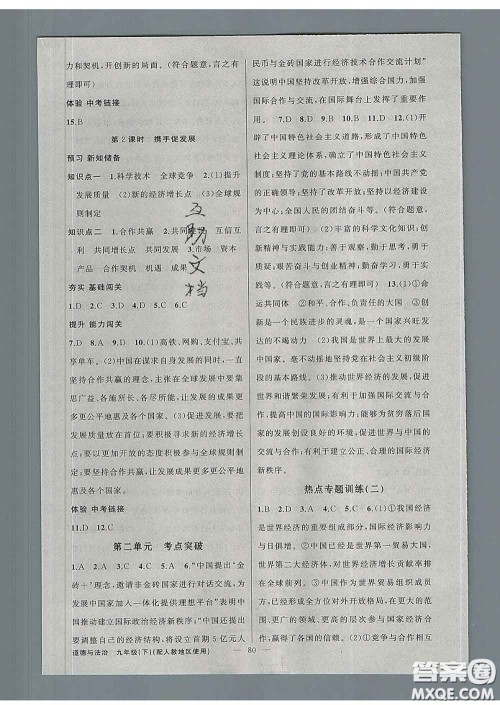 力和契机,开创新的局面。(符合题意,言之有
理即可)
体验 中考链接
15.B
第2课时 携手促发展
预习 新知储备
知识点一 1.科学技术 全球竞争 2.(1)提升
发展质量 (2)新的经济增长点 (3)全球规
则制定
知识点二 1.合作共赢 2.共同 互信互
利 共同增长点 共同发展 3.市场 资本
产品 合作契机 机遇 成果
夯实 基础闯关
1.D 2.C 3.A 4.D 5.C 6.C
提升 能力闯关
7.D 8.A 9.D 10.(1)高铁、网购、支付宝、共
享单车。(2)中国在谋求自身发展的同时,一直
坚持合作共赢的理念,主张在全球发展中要集
思广益、各施所长、各尽所能,让发展成果更多
更公平地惠及各个国家。(3)要坚持发展,要
把发展质量放在首位;要积极寻求新的经济增
长点;要以更加开放的态度积极参与全球规则
制定;要坚持合作共赢,让发展成果更多更公平地
惠及各个国家。
体验 中考链接
11.D 12.C
第二单元 考点突破
1.A 2.A 3.B 4.C 5.B 6."中国提出'金
砖+'理念,邀请非金砖国家进行对话交流,为
发展中国家加入一体化提供理想平台"表明中
国推动建立国际政治经济新秩序;"中国还提出
要调整自己的经济结构,将设立首期5亿元人
道德与法治 九年级(下)(配人教地区使用)
民币与金砖国家进行经济技术合作交流计划"
这说明中国坚持改革开放,增强综合国力,加强
国际合作与交流,在国际舞台上发挥了重要作
用。 7.D 8.D 9.B 10.D 11.C 12.(1)开
辟了中国特色社会主义道路,形成了中国特色
社会主义理论体系,确立了中国特色社会主义
制度;坚持了党的基本路线不动摇;中国共产党
的正确领导;坚持对外开放;坚持以经济建设为
中心;全国人民的团结奋斗等。(符合题意,言
之有理即可)(2)丰富的科学文化知识;敢于
创新的实践精神;善于观察,勤于思考;敢于质
疑;创新与创业精神;勤奋学习,勇于实践等。
(符合题意,言之有理即可) 13.(1)①命
运共同体 ②和平、合作、负责任的大国 ③创
新是一个民族进步的灵魂,是一个国家兴旺发
达的不竭动力 (2)我国是世界上最大的发展
中国家。毫不动摇地坚持党在社会主义初级阶
段的基本路线。(3)推动世界经济的发展,促进
世界和谐繁荣发展;有利于加强国际交流与合
作,提高中国的国际影响力;能够为贫穷落后国
家的发展创设良好的环境,促进世界与中国的
交流与合作;有利于建立公正、合理的国际经济
新秩序。
热点专题训练(二)
1.B 2.D 3.A 4.C 5.C 6.(1)①我国经济
是世界经济的重要组成部分,国际经济影响力
与日俱增。②中国是世界第一贸易大国,
世界第二大经济体,对世界经济增长的贡献率排
在全球前列。③中国作为世界贸易组织成员
方,已经成长为一支成熟的力量,为世界各国、
更广阔的领域作出自己的贡献,赢得了国际社
会的高度赞誉。(2)①竞争与合作是相互
80
互助文档
答案圈
MXQE.COM